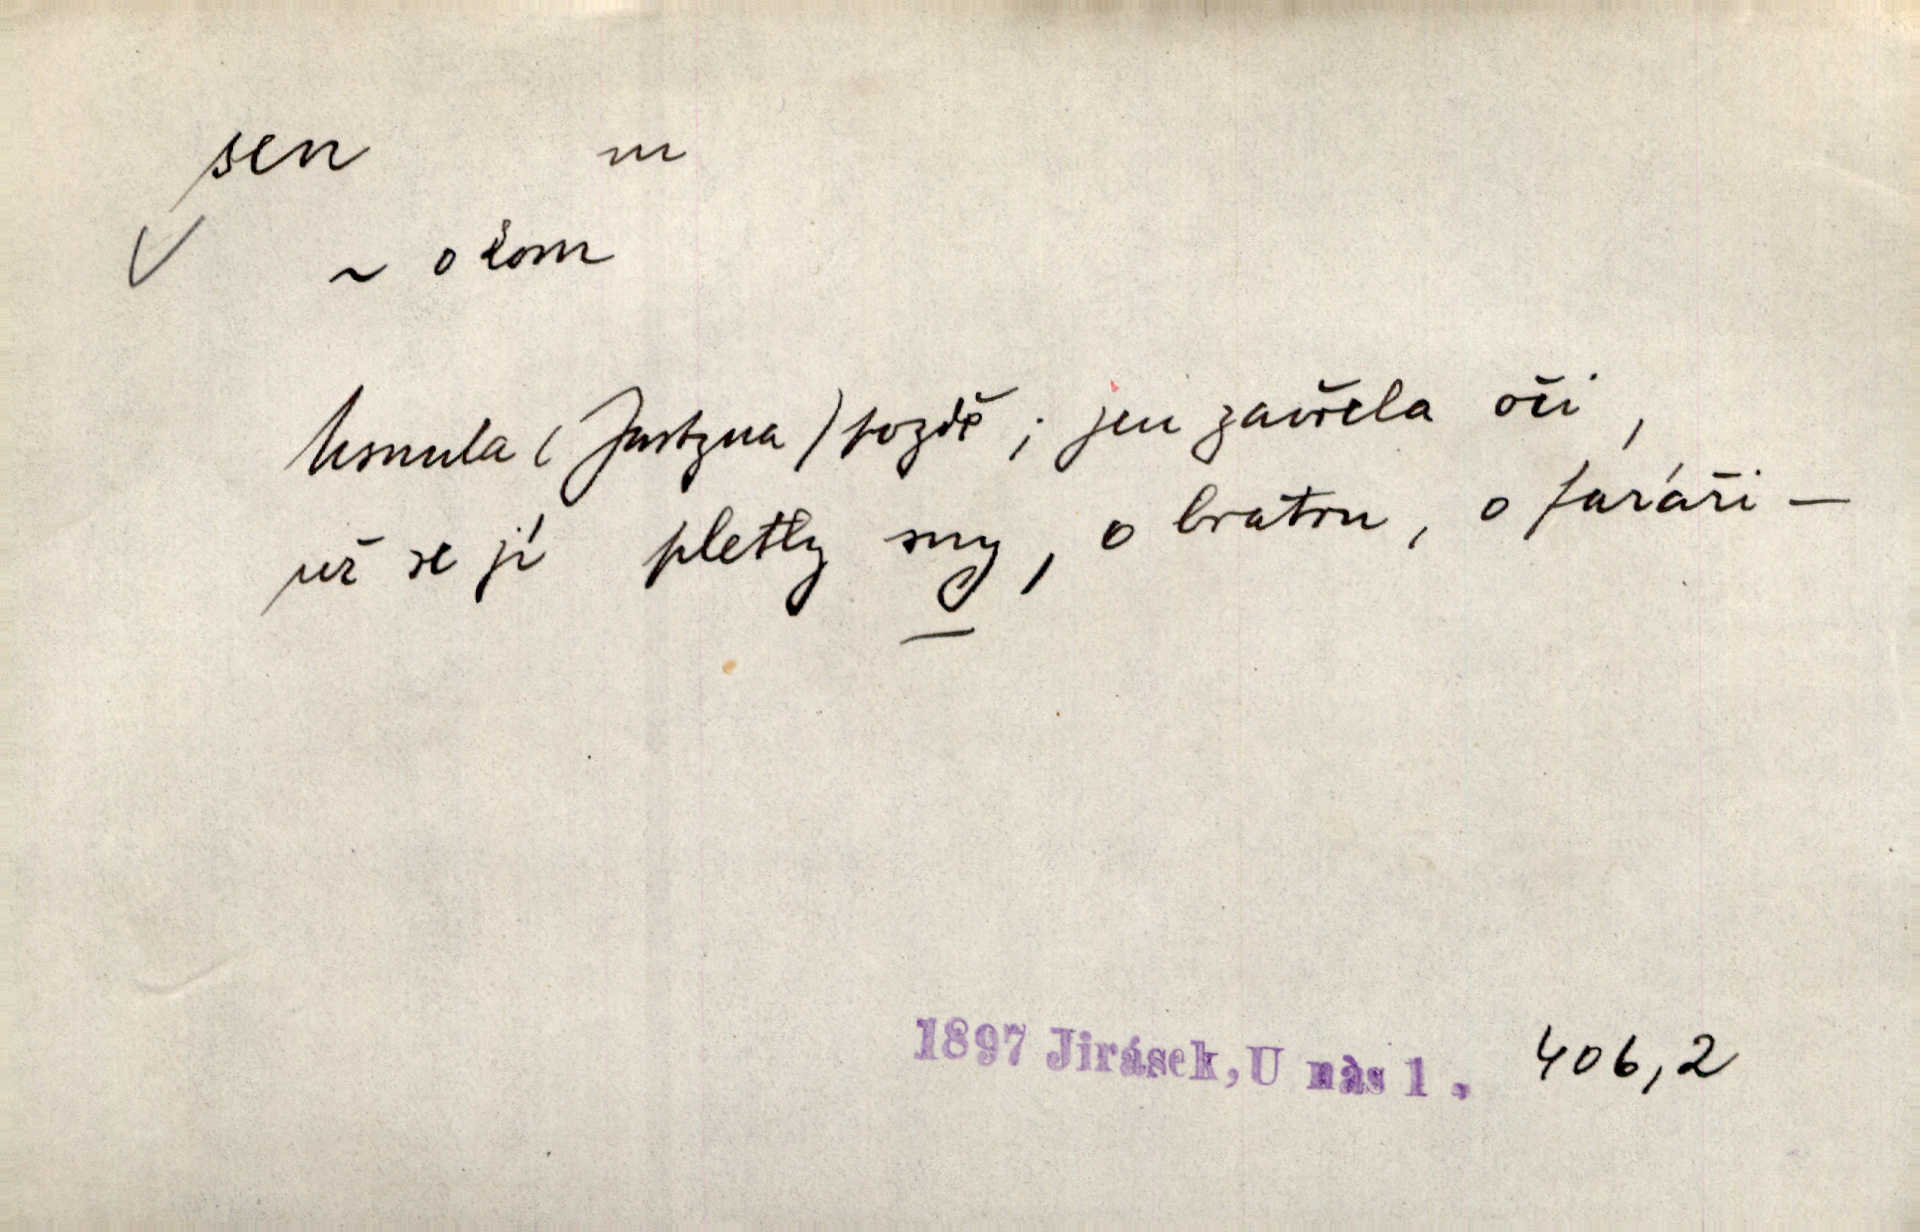 sen m
~ o kom
Usnula (Justyna) pozdě; jen zavřela oči,
už se jí pletly sny, o bratru, o faráři —
1897 Jirásek, U nàs 1. 406,2